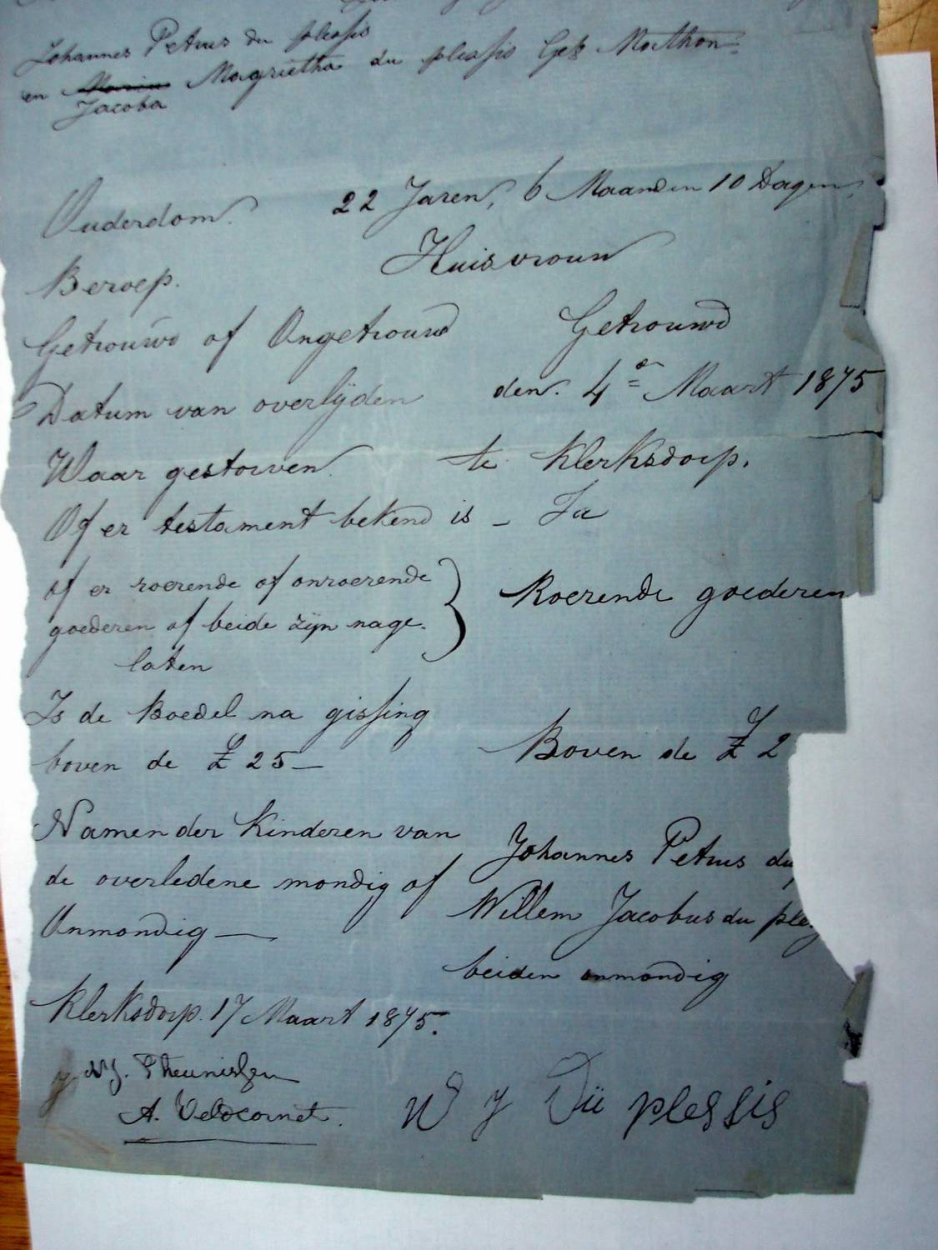 Johannes Petrus du plessis
en Magrietha du plessis Geb
Jacoba
Ouderdom. 22 Jaren, 6 Maanden 10 Dagen
Beroep. Huisvrouw
Getrouwd of Ongetrouwd Getrouwd
Datum van overlijden den. 4de Maart 1875
Waar gestorven te Klerksdorp.
Of er testament bekend is – Ja
of er roerende of onroerende } Roerende goederen
goederen of beide zijn nage-
laten
Is de Boedel na gissing
boven de £ 25 — Boven de £ 2
Namen der Kinderen van
de overledene mondig of Johannes Petrus du
Onmondig — Willem Jacobus du ples
beiden onmondig
Klerksdorp. 17 Maart 1875.
Theunissen
A. Veldcornet. W J Dü plessis